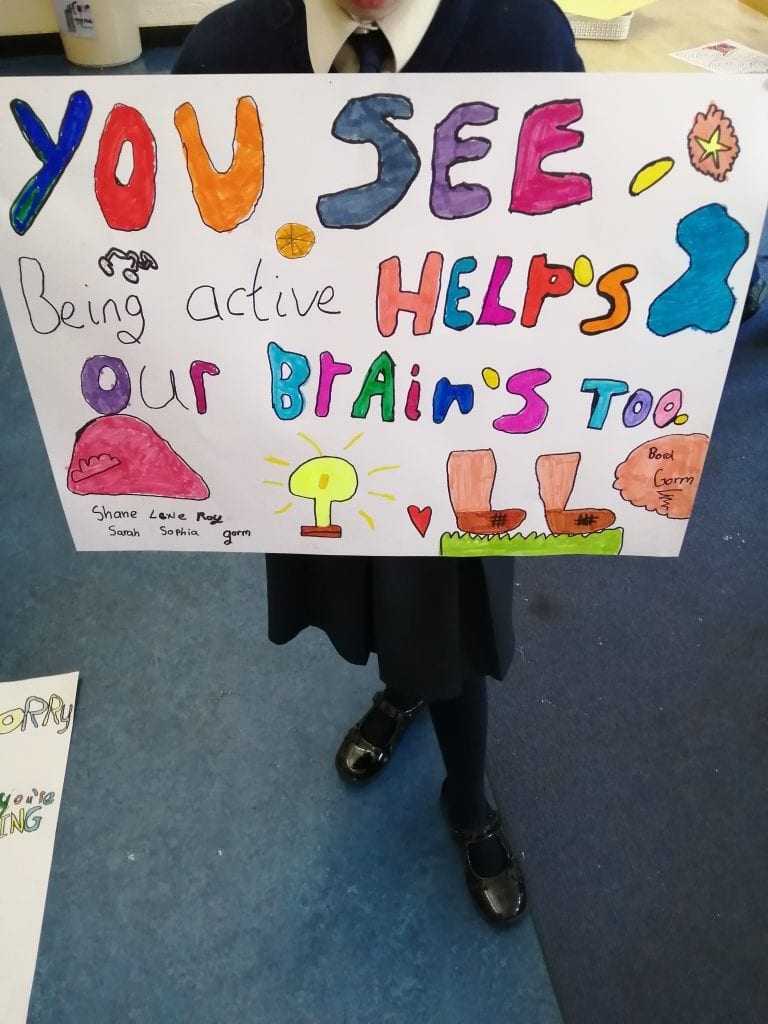 YOU SEE
Being active HELP's
Our BrAin's TOO.
Bord
Gorm
Shane Lexie Roy
Sarah Sophia gorm
ORRY
you're
ING